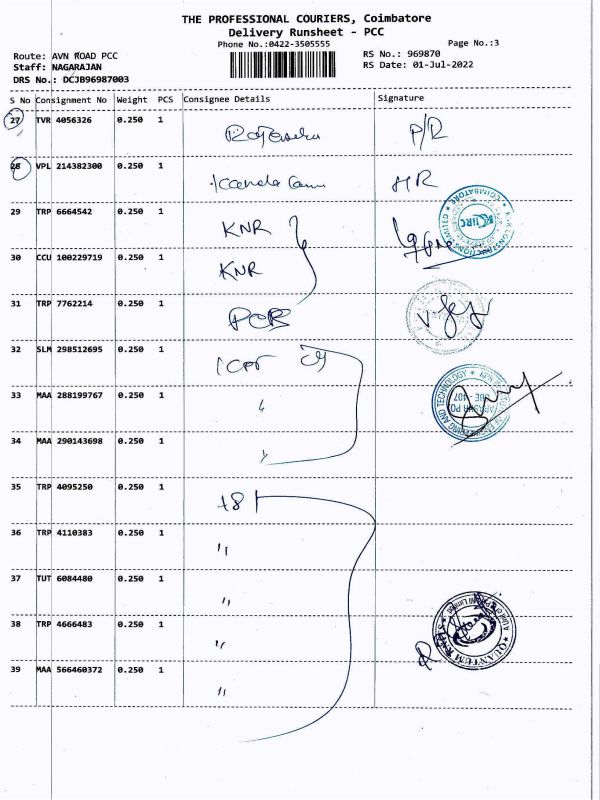 THE PROFESSIONAL COURIERS, Coimbatore
Delivery Runsheet - PCC
Phone No.:0422-3505555
Page No.:3
Route: AVN ROAD PCC
RS No.: 969870
Staff: NAGARAJAN
RS Date: 01-Jul-2022
DRS No.: DCJB96987003
S No Consignment No Weight PCS Consignee Details Signature
27 TVR 4056326 0.250 1 P/R
28 VPL 214382300 0.250 1 HR
29 TRP 6664542 0.250 1 KNR
30 CCU 100229719 0.250 1 KNR
31 TRP 7762214 0.250 1
32 SLM 298512695 0.250 1
33 MAA 288199767 0.250 1 "
34 MAA 290143698 0.250 1 "
35 TRP 4095250 0.250 1
36 TRP 4110383 0.250 1 "
37 TUT 6084480 0.250 1 "
38 TRP 4666483 0.250 1 "
39 MAA 566460372 0.250 1 "
COIMBATORE
AND TECHNOLOGY
QUANTUM